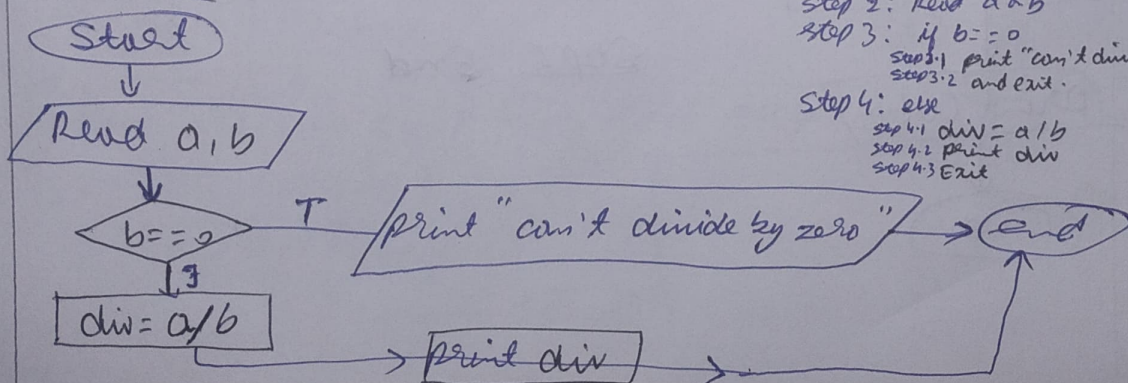 Start
Read a, b
b==0
T
F
print "can't divide by zero"
end
div = a/b
print div
Step 2: Read a & b
Step 3: if b==0
Step3.1 print "can't div
Step3.2 and exit.
Step 4: else
Step 4.1 div = a/b
Step 4.2 print div
Step 4.3 Exit